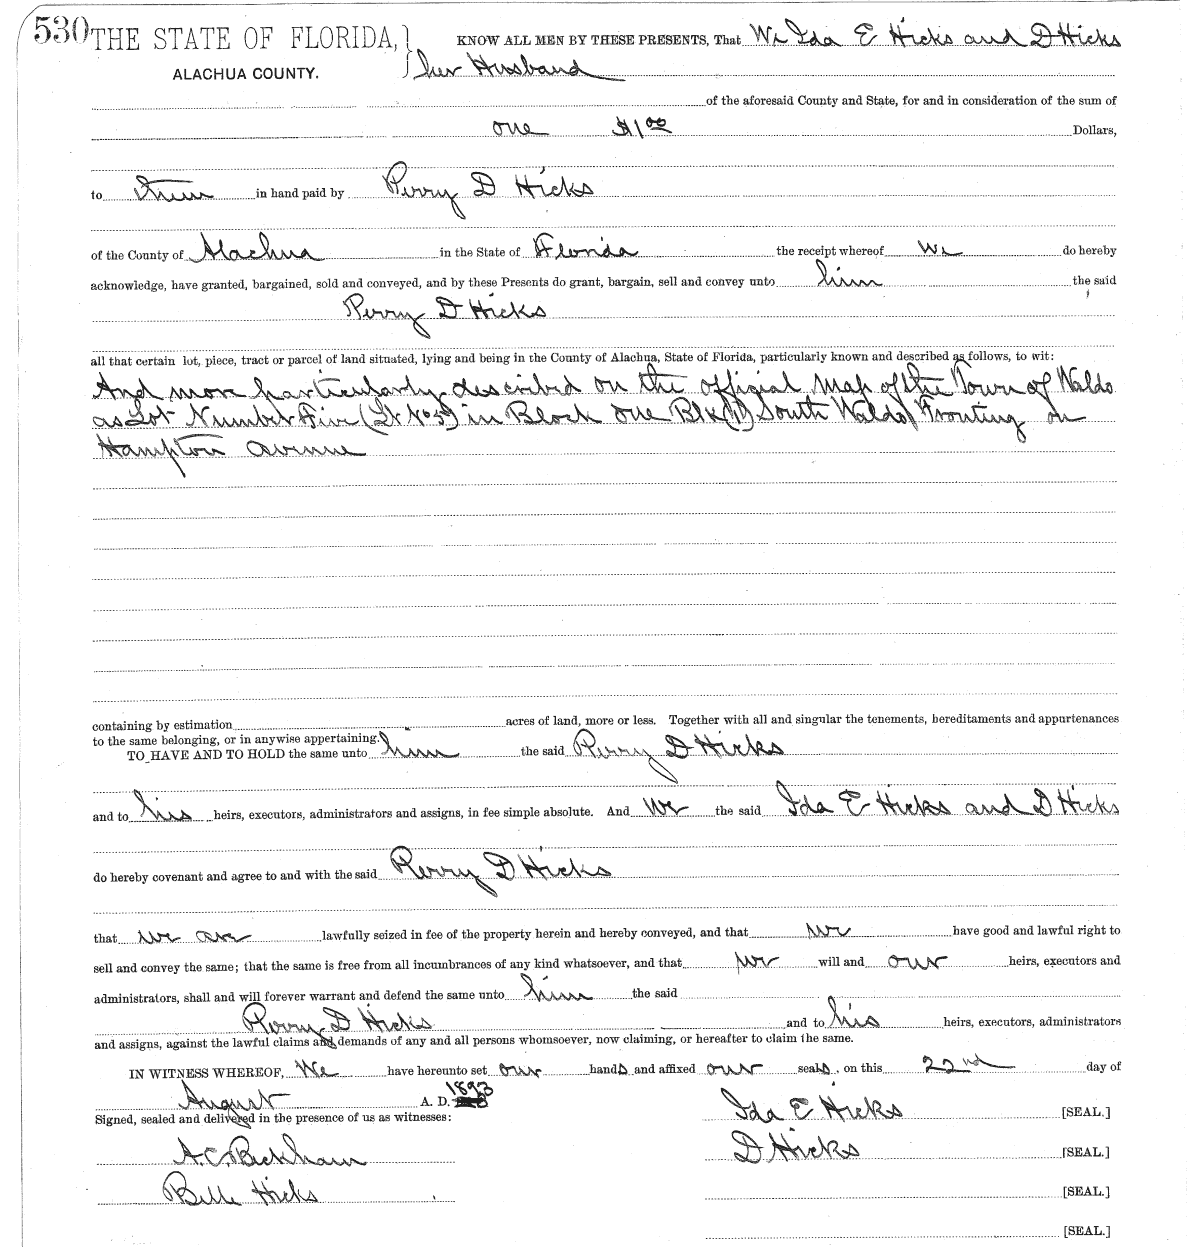 530 THE STATE OF FLORIDA, } KNOW ALL MEN BY THESE PRESENTS, That We Ida E Hicks and D Hicks
ALACHUA COUNTY. her Husband
of the aforesaid County and State, for and in consideration of the sum of
one $1 00 Dollars,
to them in hand paid by Perry D Hicks
of the County of Alachua in the State of Florida the receipt whereof we do hereby
acknowledge, have granted, bargained, sold and conveyed, and by these Presents do grant, bargain, sell and convey unto him the said
Perry D Hicks
all that certain lot, piece, tract or parcel of land situated, lying and being in the County of Alachua, State of Florida, particularly known and described as follows, to wit:
And more particularly described on the official map of the Town of Waldo
as Lot Number Five (Lt No 5) in Block one Blk (1) South Waldo Fronting on
Hampton avenue
containing by estimation acres of land, more or less. Together with all and singular the tenements, hereditaments and appurtenances
to the same belonging, or in anywise appertaining.
TO HAVE AND TO HOLD the same unto him the said Perry D Hicks
and to his heirs, executors, administrators and assigns, in fee simple absolute. And we the said Ida E Hicks and D Hicks
do hereby covenant and agree to and with the said Perry D Hicks
that we are lawfully seized in fee of the property herein and hereby conveyed, and that we have good and lawful right to
sell and convey the same; that the same is free from all incumbrances of any kind whatsoever, and that we will and our heirs, executors and
administrators, shall and will forever warrant and defend the same unto him the said
Perry D Hicks and to his heirs, executors, administrators
and assigns, against the lawful claims and demands of any and all persons whomsoever, now claiming, or hereafter to claim the same.
IN WITNESS WHEREOF, We have hereunto set our hands and affixed our seals, on this 22nd day of
August A. D. 1893
Signed, sealed and delivered in the presence of us as witnesses: Ida E Hicks [SEAL.]
A.C. Beckham D Hicks [SEAL.]
Belle Hicks [SEAL.]
[SEAL.]